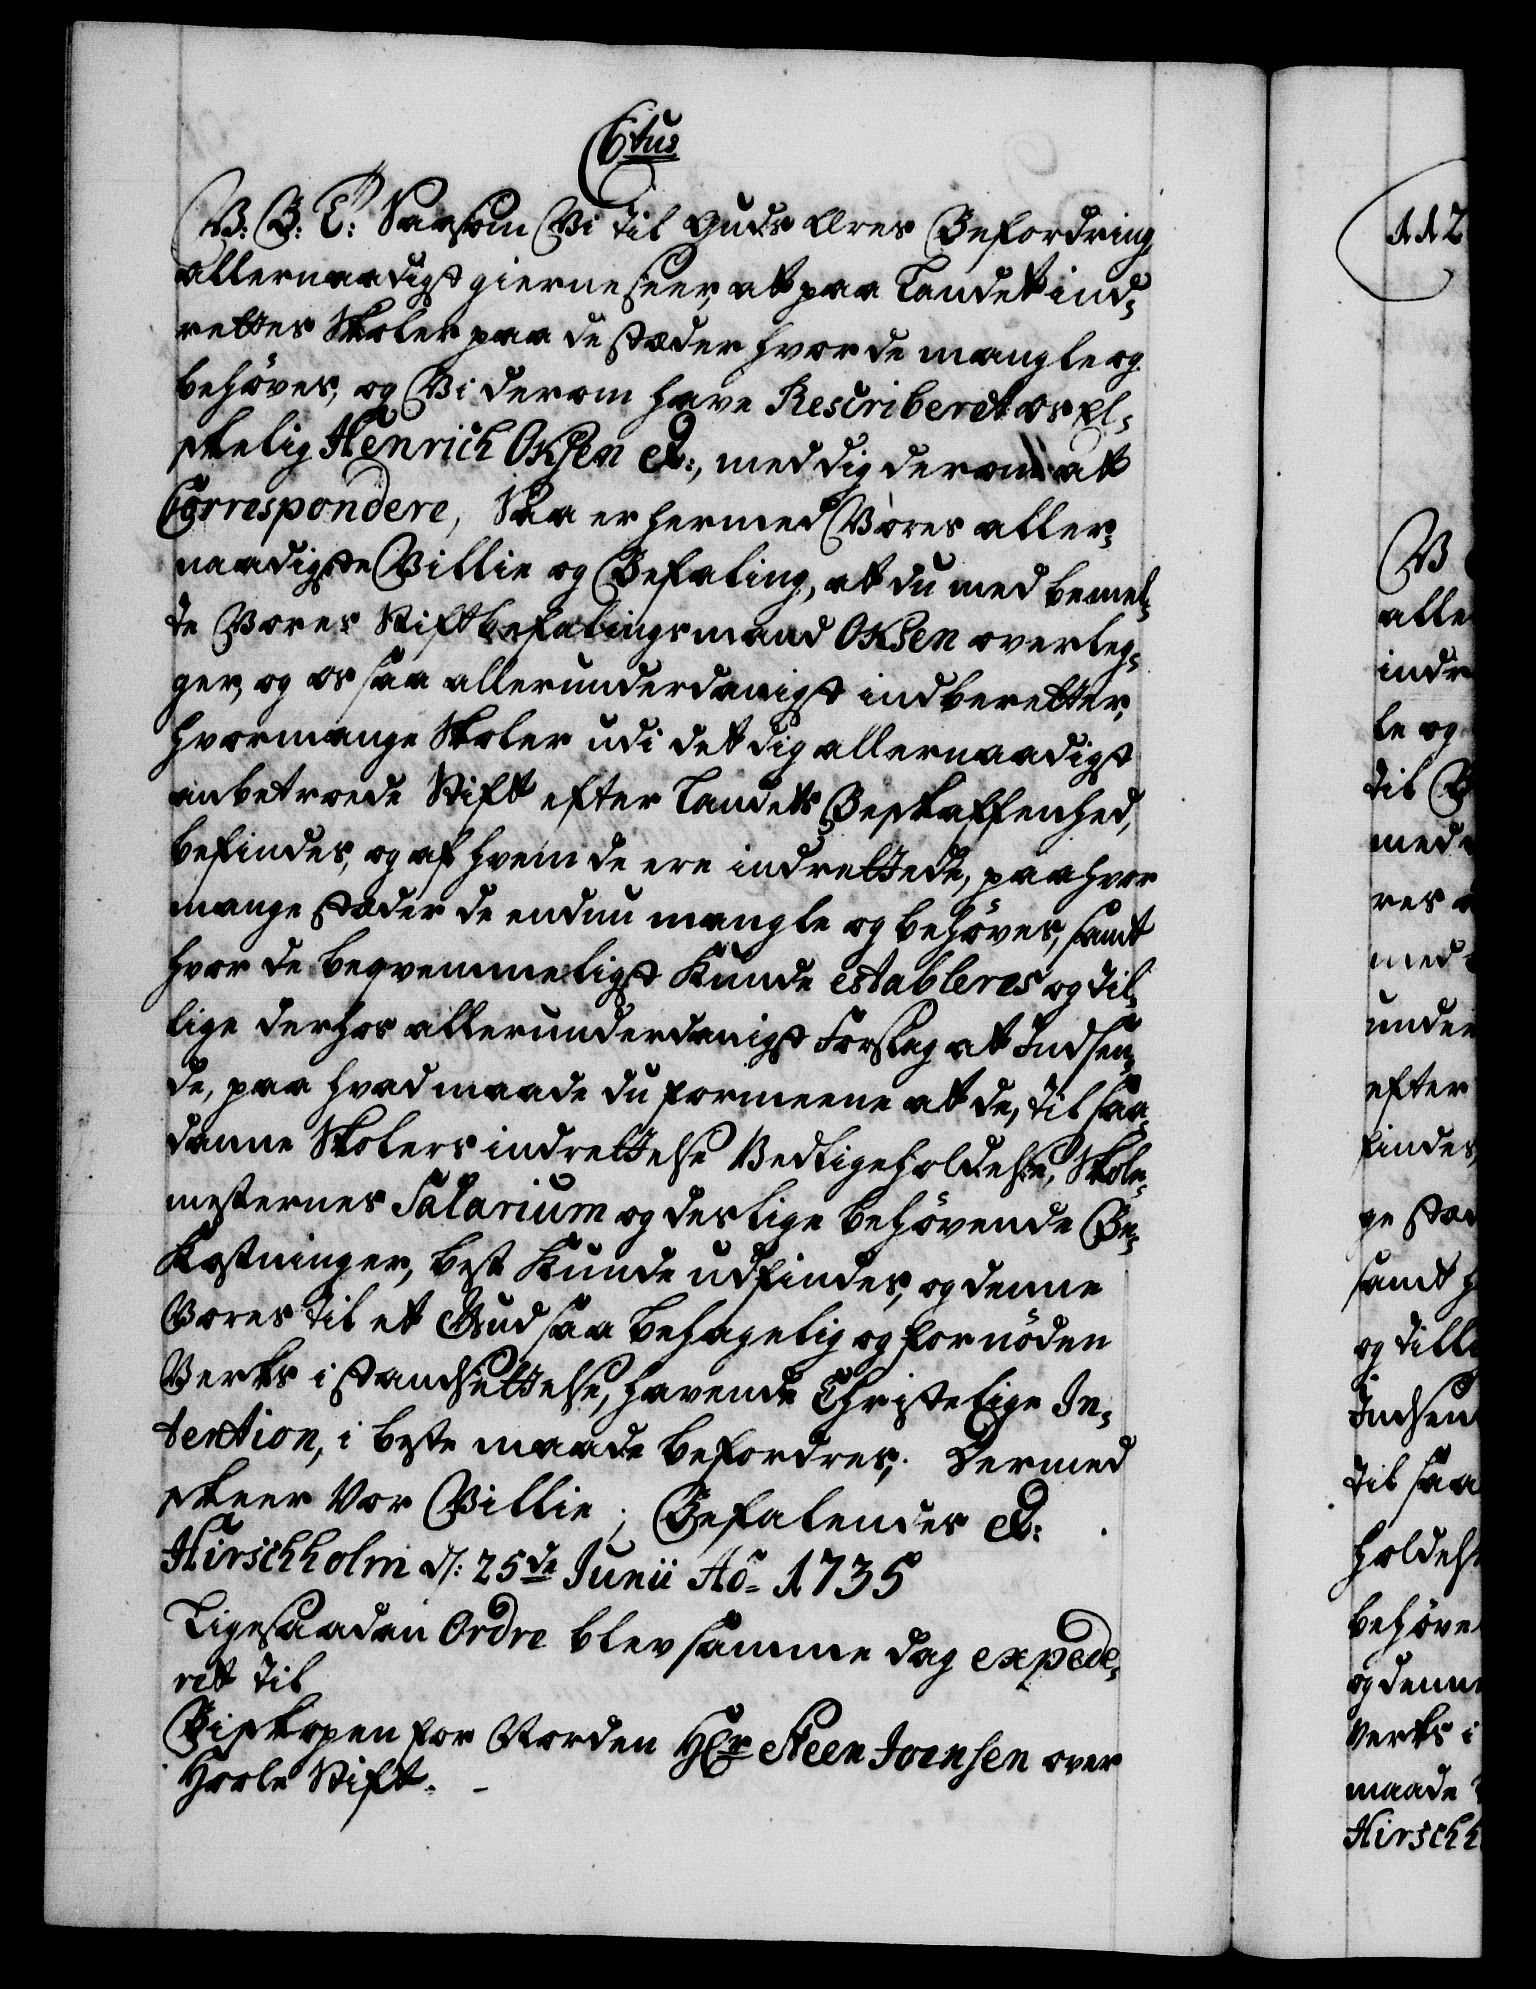 Ctus
V: G: T: Saasom Vi til Guds Æres Befordring
allernaadigst gierne seer, at paa Landet ind-
rettes Skoler paa de stæder hvor de mangle og
behöves, og Vi derom have Rescriberet os El-
skelig Henrich Oksen &:, med dig derom at
Correspondere, Saa er hermed Vores aller-
naadigste Villie og Befaling, at du med bemel-
te Vores Stiftbefalingsmand Oksen overleg-
ger, og os saa allerunderdanigst indberetter,
hvormange Skoler udi det dig allernaadigst
anbetroede Stift efter Landets Beskaffenhed,
befindes, og af hvem de ere indrettede, paa hvor
mange stæder de endnu mangle og behöves, samt
hvor de beqvemmeligst kunde etableres og til-
lige derhos allerunderdanigst Forslag at Indsen-
de, paa hvad maade du formeene at de, til saa-
danne Skolers indrettelse Vedligeholdelse, Skole-
mesternes Salarium og deslige behövende Be-
kostninger, best kunde udfindes, og denne
Vores til et Gud saa behagelig og fornöden
Verks i standsettelse, havende Christelige In-
tention, i beste maade befordres; Dermed
skeer Vor Villie; Befalendes &:
Hirschholm d: 25de Junii Aö- 1735
Ligesaadan Ordre blev samme dag expede-
ret til
Biskopen for Norden Hr Steen Joensen over
Hoole Stift. -
112
V
alle
indr
le og
til B
mede
res a
med
under
efter
findes,
ge stæ
samt h
og tilli
Indsen
til saa
holdels
behöve
og denne
Verks i
maade
Hirschh